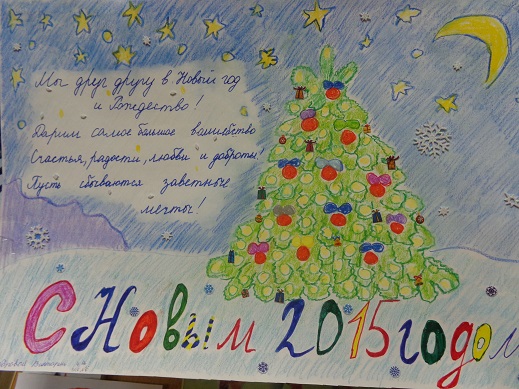 Мы друг другу в Новый год
и Рождество!
Дарим самое большое волшебство
Счастья, радости, любви и доброты!
Пусть сбываются заветные
мечты!
С Новым 2015 годом